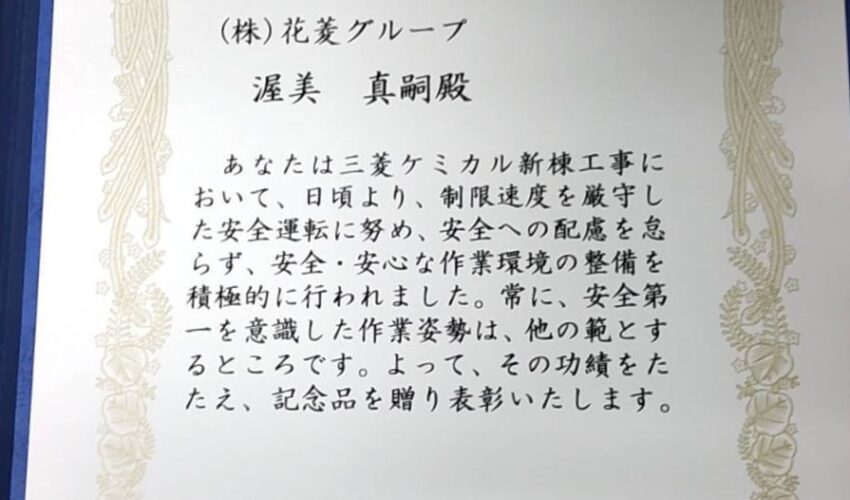 (株)花菱グループ
渥美　真嗣殿
あなたは三菱ケミカル新棟工事に
おいて、日頃より、制限速度を厳守し
た安全運転に努め、安全への配慮を怠
らず、安全・安心な作業環境の整備を
積極的に行われました。常に、安全第
一を意識した作業姿勢は、他の範とす
るところです。よって、その功績をた
たえ、記念品を贈り表彰いたします。